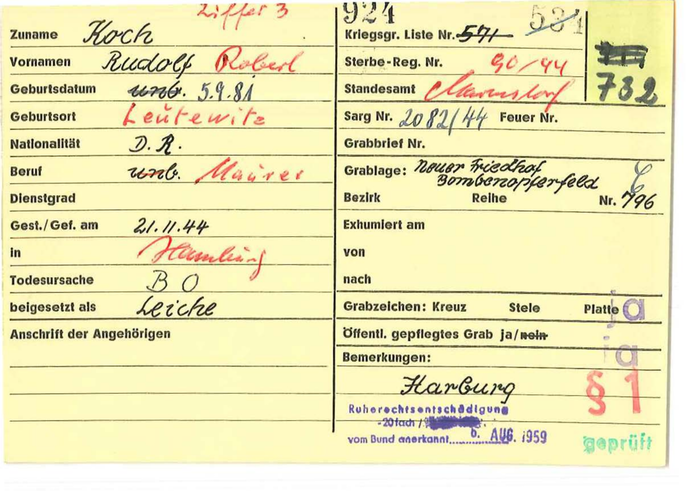 Ziffer 3
Zuname Koch
Vornamen Rudolf Robert
Geburtsdatum unb. 5.9.81
Geburtsort Leutewitz
Nationalität D.R.
Beruf unb. Maurer
Dienstgrad
Gest./Gef. am 21.11.44
in Hamburg
Todesursache B O
beigesetzt als Leiche
Anschrift der Angehörigen
924 534
Kriegsgr. Liste Nr. 571
Sterbe-Reg. Nr. 90/44
732
Standesamt
Sarg Nr. 2082/44 Feuer Nr.
Grabbrief Nr.
Grablage: Neuer Friedhof
Bombenopferfeld
Bezirk Reihe Nr. 796
Exhumiert am
von
nach
Grabzeichen: Kreuz Stele Platte ja
Öffentl. gepflegtes Grab ja/nein
ja
Bemerkungen:
Harburg
§ 1
Ruherechtsentschädigung
-20fach /
vom Bund anerkannt 6. AUG. 1959
geprüft